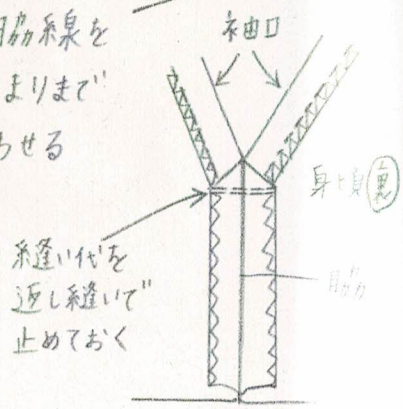 脇線を
まりまで
わせる
袖口
身頃裏
縫い代を
返し縫いで
止めておく
脇